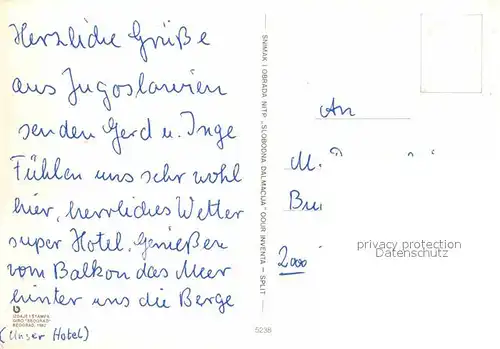 Herzliche Grüße
aus Jugoslawien
senden Gerd u. Inge
Fühlen uns sehr wohl
hier, herrliches Wetter
super Hotel. Genießen
vom Balkon das Meer
hinter uns die Berge
(Unser Hotel)
IZDAJE I ŠTAMPA
BIRO "BEOGRAD"
SNIMAK I OBRADA NITP „SLOBODNA DALMACIJA“ OOUR INVENTA — SPLIT
5238
An
M.
2000
privacy protection
Datenschutz